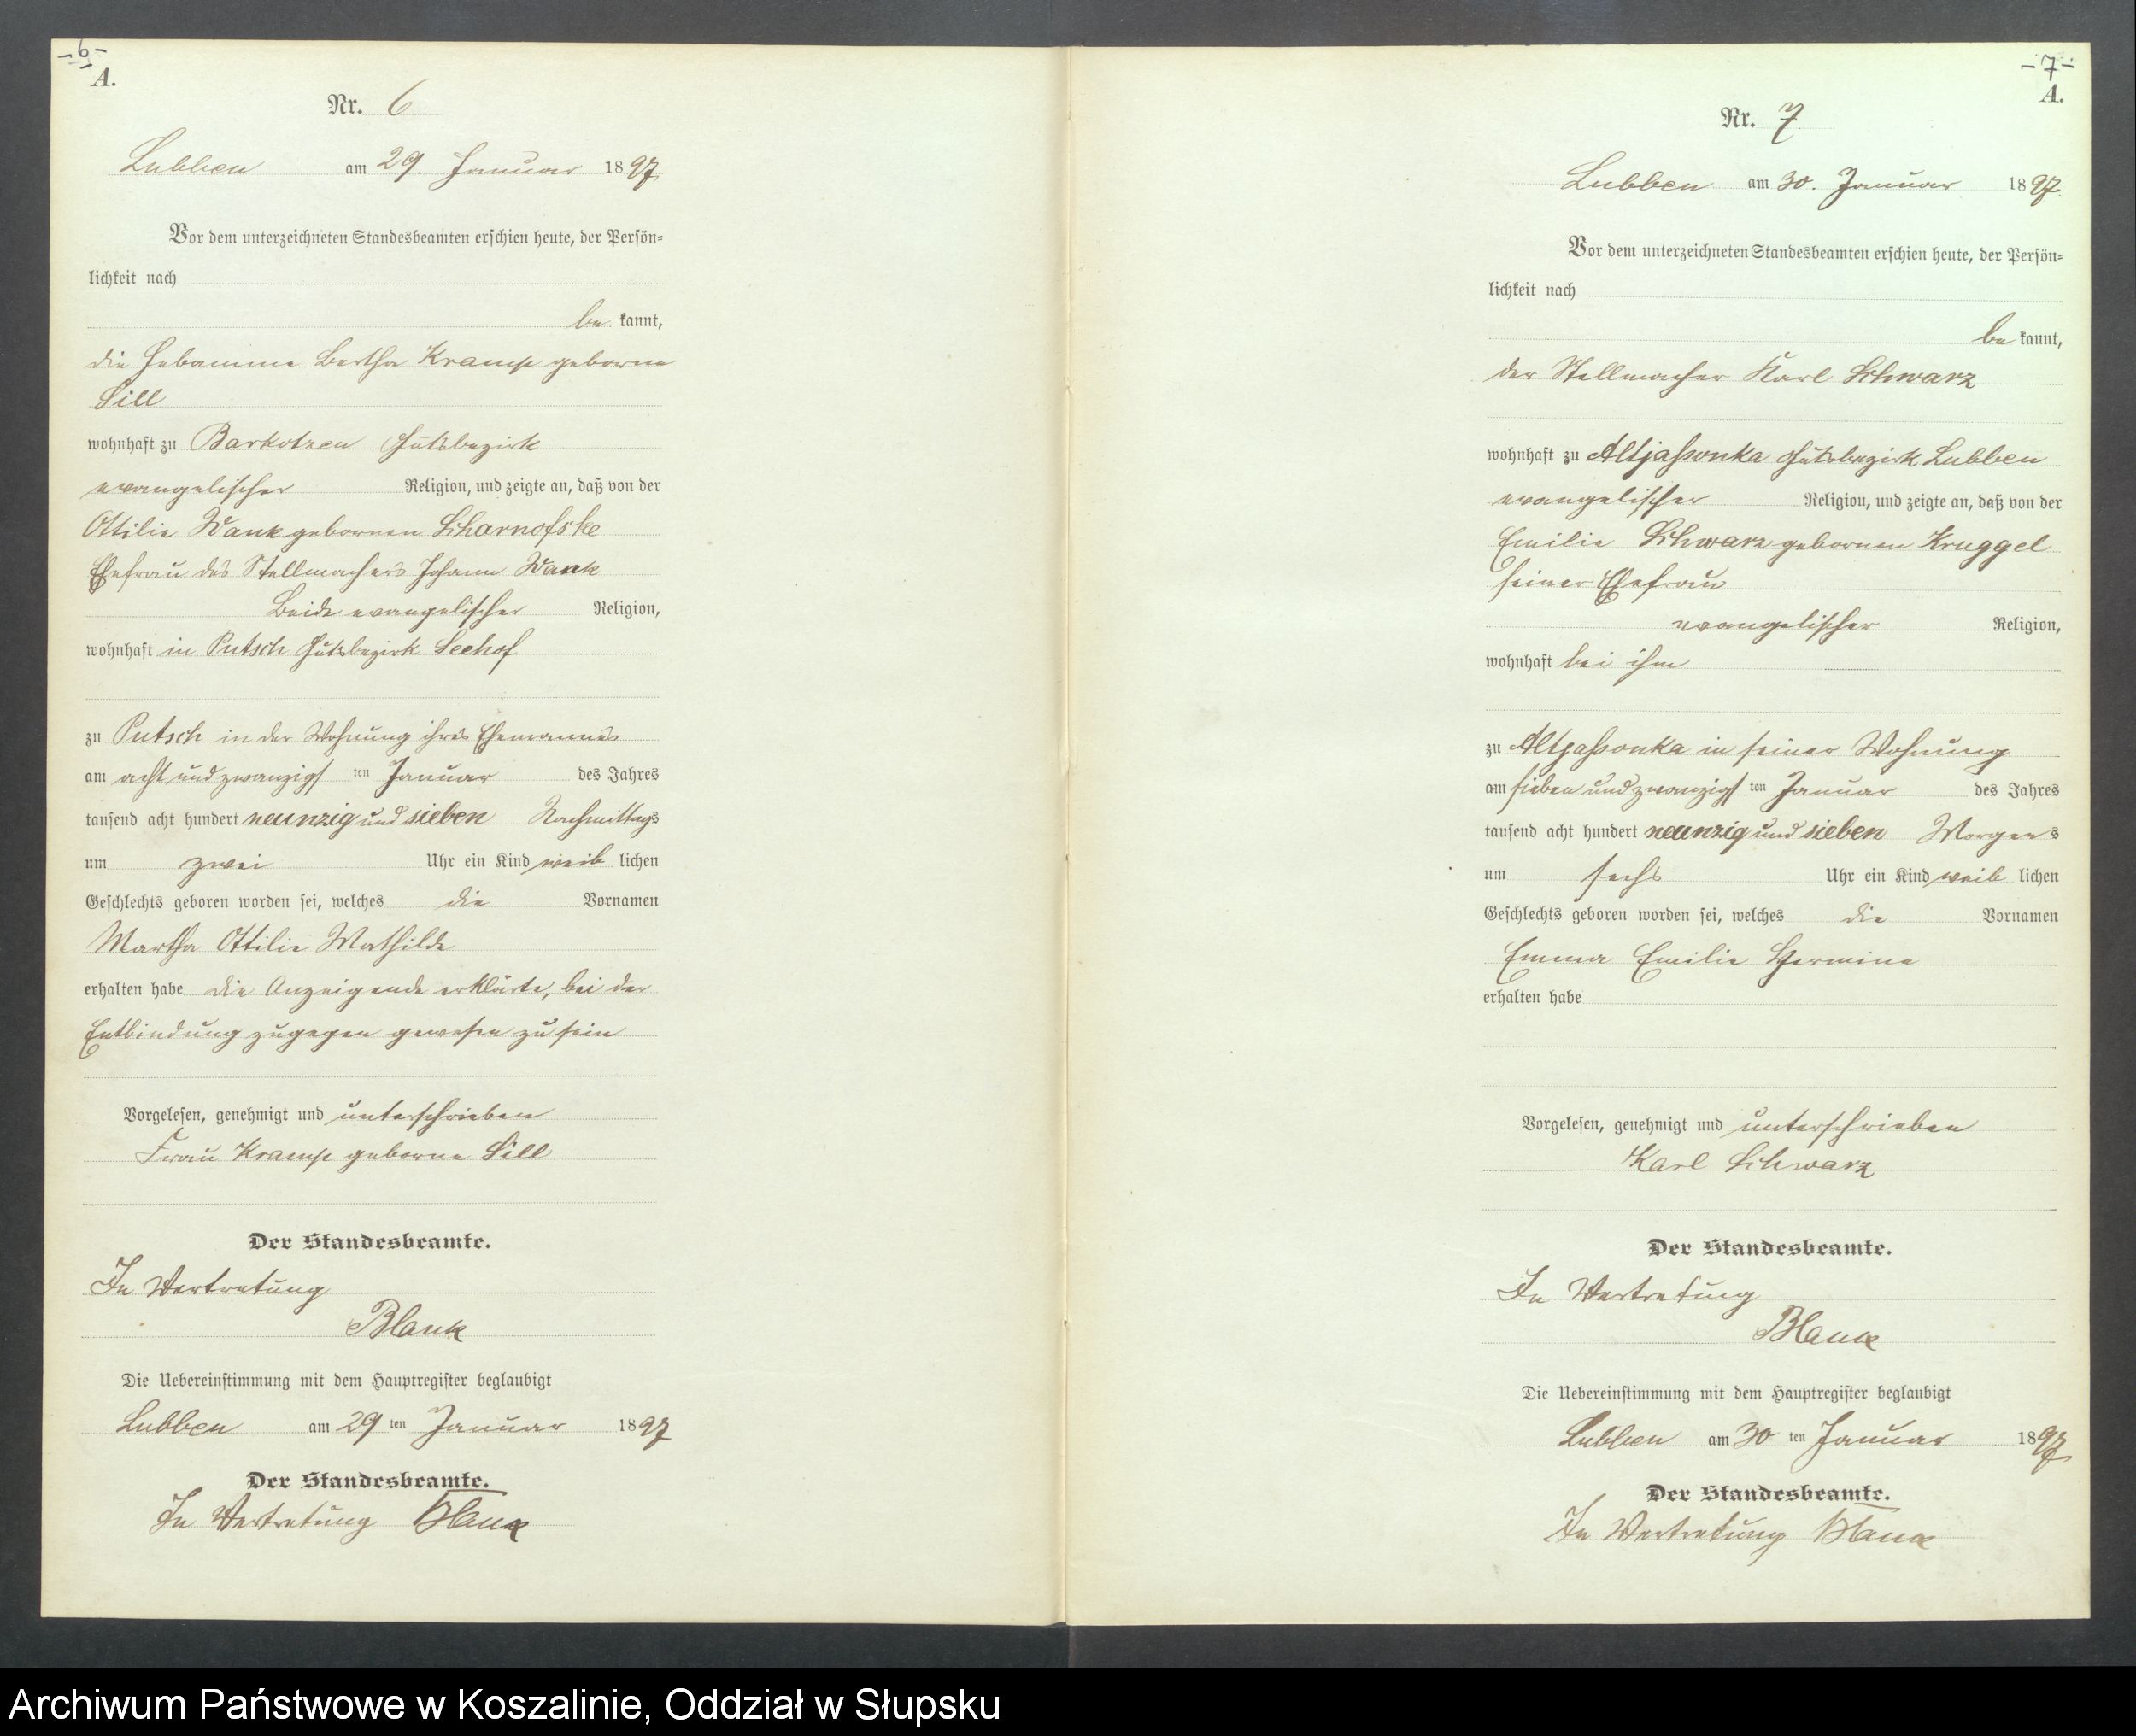 -6-
A.
Nr. 6
Lubben am 29. Januar 1897
Vor dem unterzeichneten Standesbeamten erschien heute, der Persön-
lichkeit nach
be kannt,
die Hebamme Bertha Kramp geborne
Sill
wohnhaft zu Barkotzen Gutsbezirk
evangelischer Religion, und zeigte an, daß von der
Ottilie Wank gebornen Scharnofske
Ehefrau des Stellmachers Johann Wank
Beide evangelischer Religion,
wohnhaft in Putsch Gutsbezirk Seehof
zu Putsch in der Wohnung ihres Ehemannes
am acht und zwanzigs ten Januar des Jahres
tausend acht hundert neunzig und sieben Nachmittags
um zwei Uhr ein Kind weib lichen
Geschlechts geboren worden sei, welches die Vornamen
Martha Ottilie Mathilde
erhalten habe die Anzeigende erklärte, bei der
Entbindung zugegen gewesen zu sein
Vorgelesen, genehmigt und unterschrieben
Frau Kramp geborne Sill
Der Standesbeamte.
In Vertretung
Blank
Die Uebereinstimmung mit dem Hauptregister beglaubigt
Lubben am 29 ten Januar 1897
Der Standesbeamte.
In Vertretung Blank
-7-
A.
Nr. 7.
Lubben am 30. Januar 1897.
Vor dem unterzeichneten Standesbeamten erschien heute, der Persön-
lichkeit nach
be kannt,
der Stellmacher Karl Schwarz
wohnhaft zu Altjassonka Gutsbezirk Lubben
evangelischer Religion, und zeigte an, daß von der
Emilie Schwarz gebornen Kruggel
seiner Ehefrau
evangelischer Religion,
wohnhaft bei ihm
zu Altjassonka in seiner Wohnung
am sieben und zwanzigs ten Januar des Jahres
tausend acht hundert neunzig und sieben Morgens
um sechs Uhr ein Kind weib lichen
Geschlechts geboren worden sei, welches die Vornamen
Emma Emilie Hermine
erhalten habe
Vorgelesen, genehmigt und unterschrieben
Karl Schwarz
Der Standesbeamte.
In Vertretung
Blank
Die Uebereinstimmung mit dem Hauptregister beglaubigt
Lubben am 30 ten Januar 1897
Der Standesbeamte.
In Vertretung Blank
Archiwum Państwowe w Koszalinie, Oddział w Słupsku